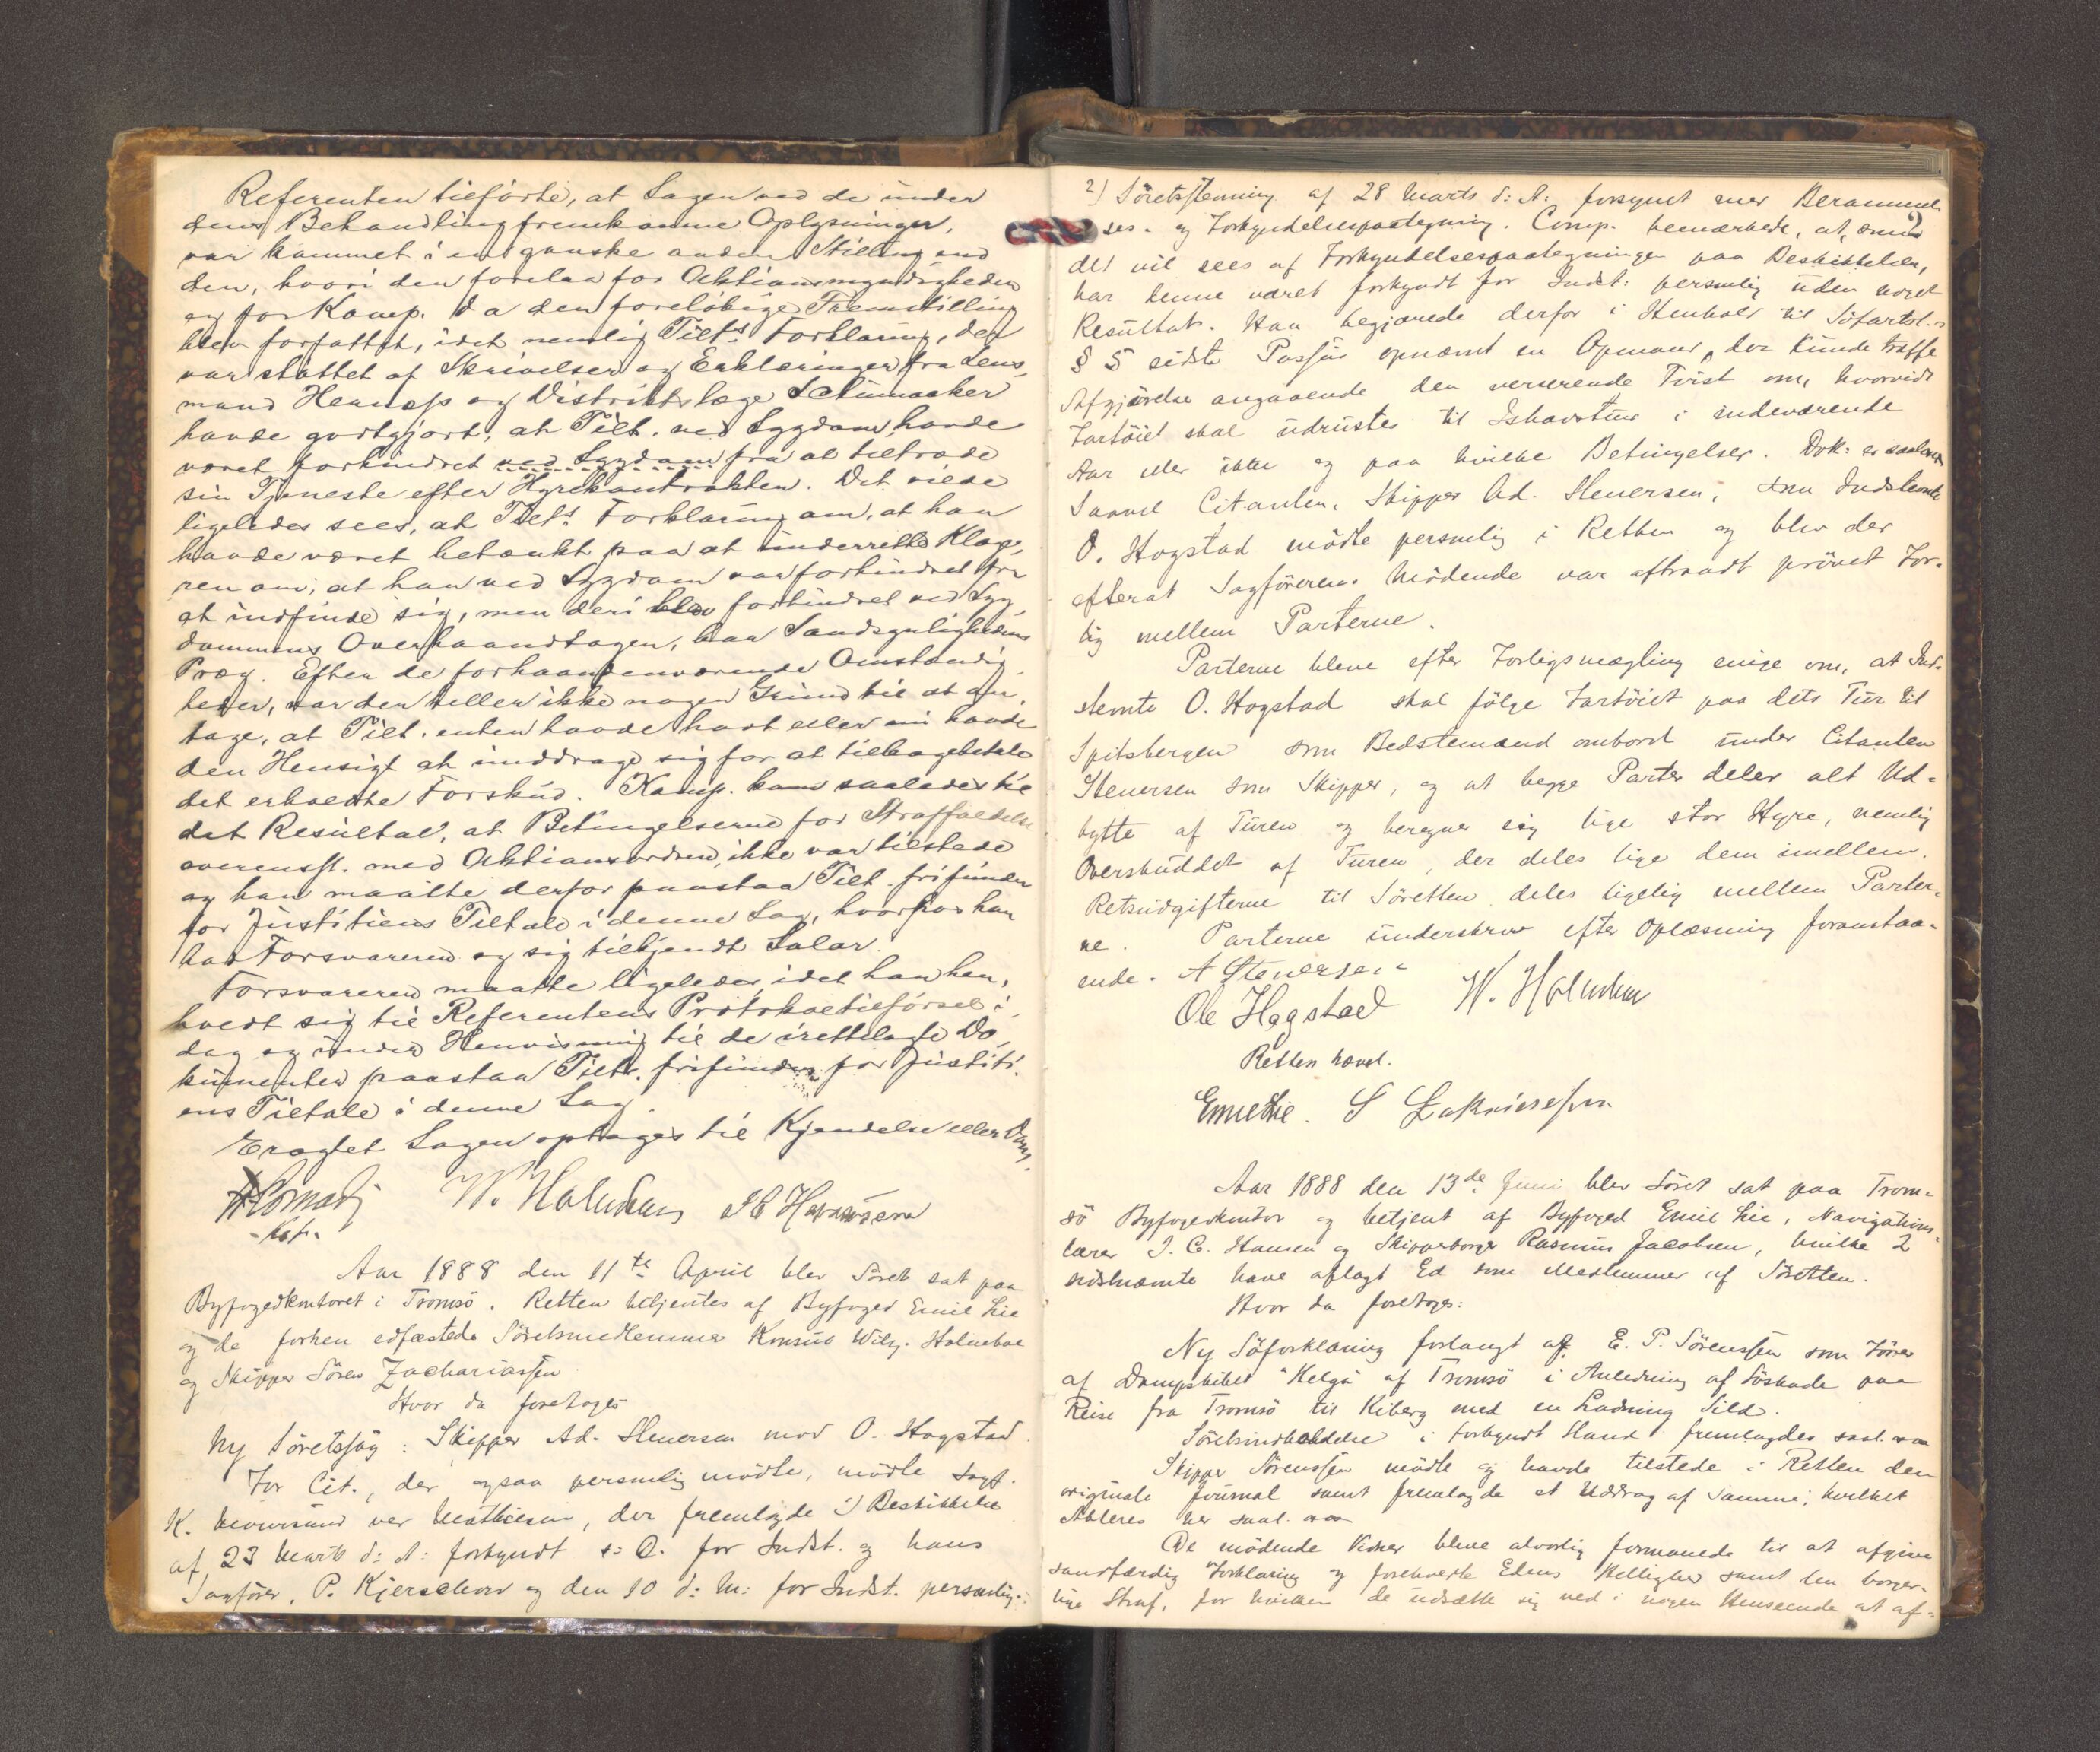 Referenten tilførte, at Sagen ved de under
dens Behandling fremkomne Oplysninger,
var kommet i en ganske anden Stilling end
den, hvori den forelaa for Aktionsmyndigheden
og for Komp. da den foreløbige Fremstilling
blev forfattet, idet nemlig Tilt.s Forklaring, der
var støttet af Skrivelser og Erklæringer fra Lens-
mand Hennæs og Distriktslæge Schumacker
havde godtgjort, at Tilt. ved Sygdom havde
været forhindret ved Sygdom fra at tiltræde
sin Tjeneste efter Hyrekontrakten. Det vilde
ligeledes sees, at Tilt.s Forklaring om, at han
havde været betænkt paa at underrette Klage-
ren om, at han ved Sygdom var forhindret fra
at indfinde sig, men deri blev forhindret ved Syg-
dommens Overhaandtagen, har Sandsynlighedens
Præg. Efter de forhaandenværende Omstændig-
heder, var der heller ikke nogen Grund til at an-
tage, at Tilt. enten havde havt eller nu havde
den Hensigt at unddrage sig for at tilbagebetale
det erholdte Forskud. Komp. kom saaledes til
det Resultat, at Betingelserne for Straffældelse
overensst. med Aktionsordren, ikke var tilstede
og han maatte derfor paastaa Tilt. frifunden
for Justitiens Tiltale i denne Sag, hvorhos han
bad Forsvareren og sig tilkjendt Salar.
Forsvareren maatte ligeledes, idet han hen-
holdt sig til Referentens Protokoltilførsel i
dag og under Henvisning til de irettelagte Do-
kumenter paastaa Tilt. frifunden for Justiti-
ens Tiltale i denne Sag.
Eragtet Sagen optages til Kjendelse eller Dom.
W. Holmboe
Kst.
Aar 1888 den 11te April blev Søret sat paa
Byfogedkontoret i Tromsø. Retten betjentes af Byfoged Emil Lie
og de forhen edfæstede Søretsmedlemmer Konsul Wilh. Holmboe
og Skipper Søren Zachariassen
Hvor da foretoges
Ny Søretssag: Skipper Ad. Stenersen mod O. Hogstad.
For Cit., der ogsaa personlig mødte, mødte Sagf.
K. ved Mathiesen, der fremlagde 1) Beskikkelse
af 23 Marts d: A: forkyndt s: D. for Indst. og hans
Sagfører, P. Kjerschow og den 10 d: M: for Indst. personlig.
2) Søretsstevning af 28 Marts d: A: forsynet med Berammel-
ses- og Forkyndelsespaategning. Comp. bemærkede, at, som
det vil sees af Forkyndelsespaategningen paa Beskikkelsen,
har denne været forkyndt for Indst: personlig uden noget
Resultat. Han begjærede derfor i Henhold til Søfartsl.s
§ 5 sidste Passus opnævnt en Opmand, der kunde træffe
Afgjørelse angaaende den verserende Tvist om, hvorvidt
Fartøiet skal udrustes til Ishavstur i indeværende
Aar eller ikke og paa hvilke Betingelser. Dok: er saal.
Saavel Citanten, Skipper Ad. Stenersen, som Indstevnte
O. Hogstad mødte personlig i Retten og blev der
efterat Sagføreren Mødende var aftraadt prøvet For-
lig mellem Parterne.
Parterne bleve efter Forligsmægling enige om, at Ind-
stevnte O. Hogstad skal følge Fartøiet paa dets Tur til
Spitsbergen som Bedstemand ombord under Citanten
Stenersen som Skipper, og at begge Parter deler alt Ud-
bytte af Turen og beregner sig lige stor Hyre, nemlig
Overskuddet af Turen, der deles lige dem imellem.
Retsudgifterne til Søretten deles ligelig mellem Parter-
ne. Parterne underskrev efter Oplæsning foranstaa-
ende. A Stenersen
Ole Hogstad W. Holmboe
Retten hævet.
Emil Lie. S Zakariassen
Aar 1888 den 13de Juni blev Søret sat paa Trom-
sø Byfogedkontor og betjent af Byfoged Emil Lie, Navigations-
lærer J. C. Hansen og Skipperborger Rasmus Jacobsen, hvilke 2
sidstnævnte have aflagt Ed som Medlemmer af Søretten.
Hvor da foretoges:
Ny Søforklaring forlangt af E. P. Sørenssen som Fører
af Dampskibet "Helga" af Tromsø i Anledning af Søskade paa
Reise fra Tromsø til Kiberg med en Ladning Sild.
Søretsindkaldelse i forkyndt Stand fremlagdes saal.
Skipper Sørenssen mødte og havde tilstede i Retten den
originale Journal samt fremlagde et Uddrag af Samme, hvilket
Akteres her saal.
De mødende Vidner bleve alvorlig formanede til at afgive
sandfærdig Forklaring og foreholdt Edens Hellighed samt den borger-
lige Straf, for hvilken de udsætte sig ved i nogen Henseende at af-